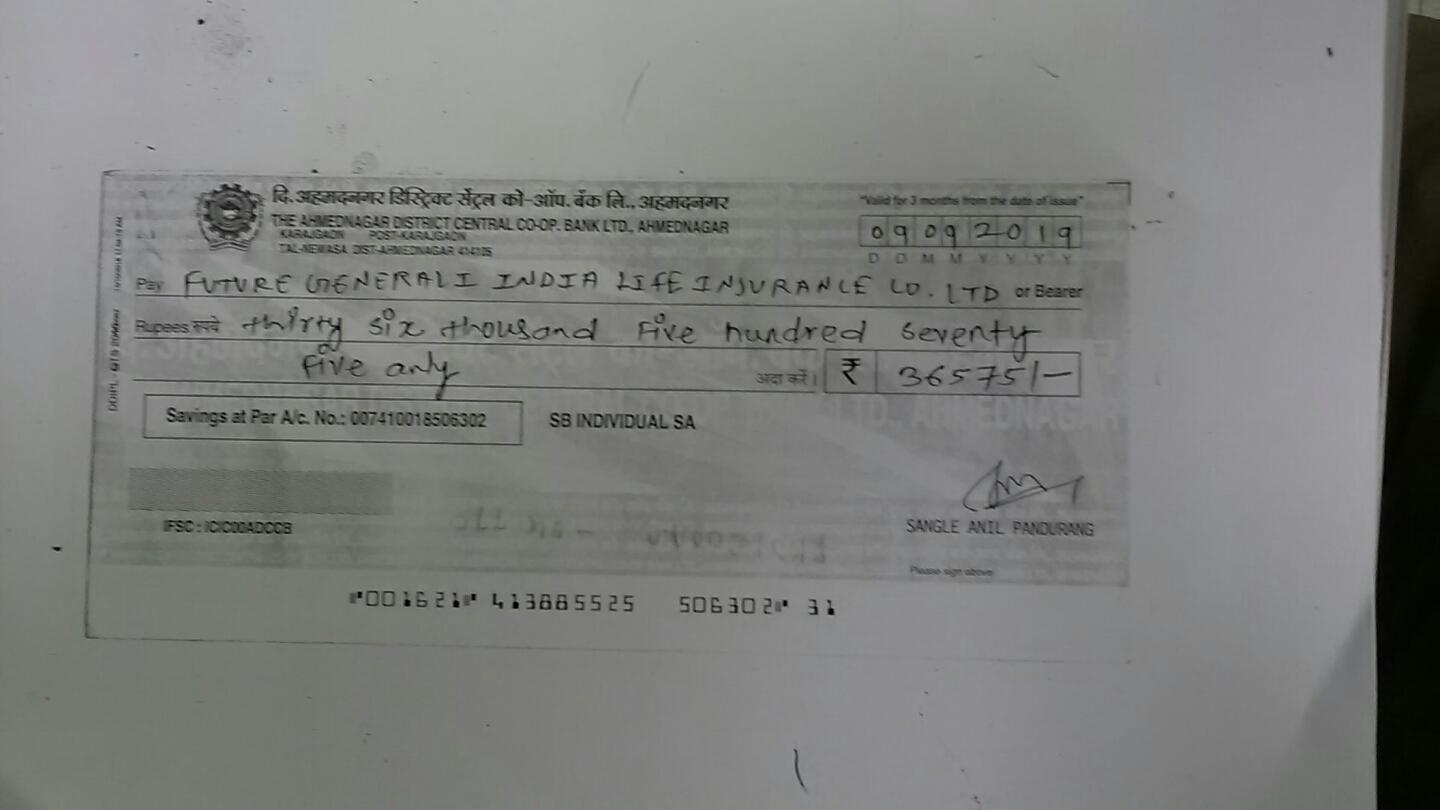 दि. अहमदनगर डिस्ट्रिक्ट सेंट्रल को-ऑप. बँक लि., अहमदनगर
THE AHMEDNAGAR DISTRICT CENTRAL CO-OP. BANK LTD., AHMEDNAGAR
KARAJGAON POST-KARAJGAON
TAL-NEWASA DIST-AHMEDNAGAR 414105
"Valid for 3 months from the date of issue"
09092019
D D M M Y Y Y Y
Pay FUTURE GENERALI INDIA LIFE INSURANCE CO. LTD or Bearer
Rupees रुपये thirty six thousand five hundred seventy
five only अदा करें। ₹ 36575/-
Savings at Par A/c. No.: 007410018506302 SB INDIVIDUAL SA
IFSC : ICIC00ADCCB
SANGLE ANIL PANDURANG
Please sign above
⑈001621⑈ 413885525 506302⑈ 31